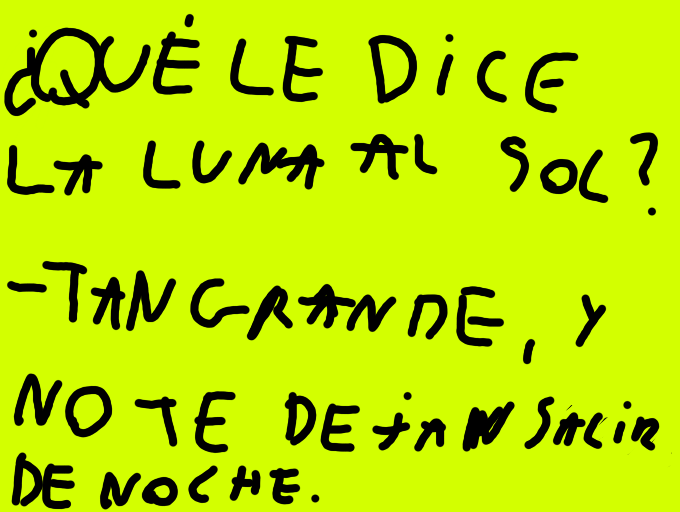 ¿QUÉ LE DICE
LA LUNA AL SOL?
-TAN GRANDE, Y
NO TE DEJAN SALIR
DE NOCHE.